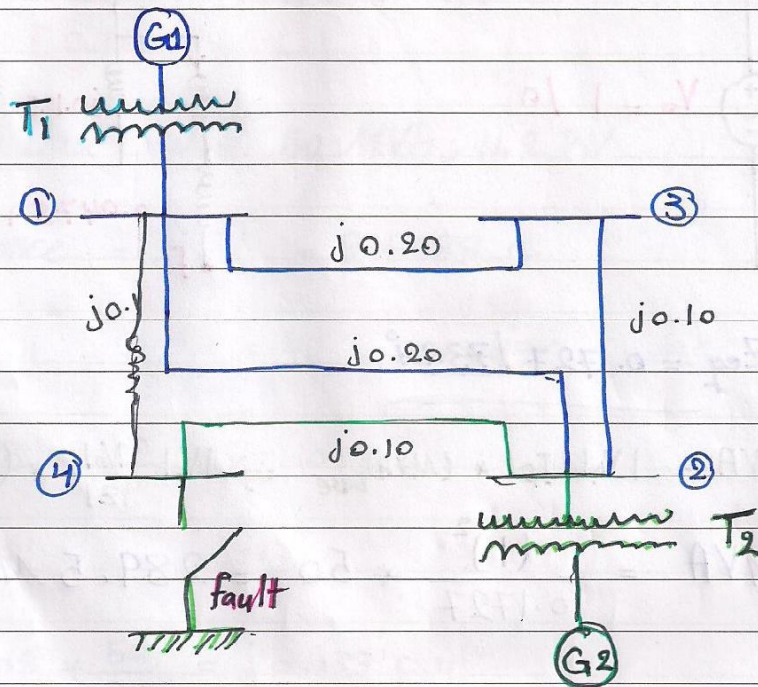 G1
T1
① ③
j0.20
j0. j0.10
j0.20
j0.10
④ ②
T2
fault
G2